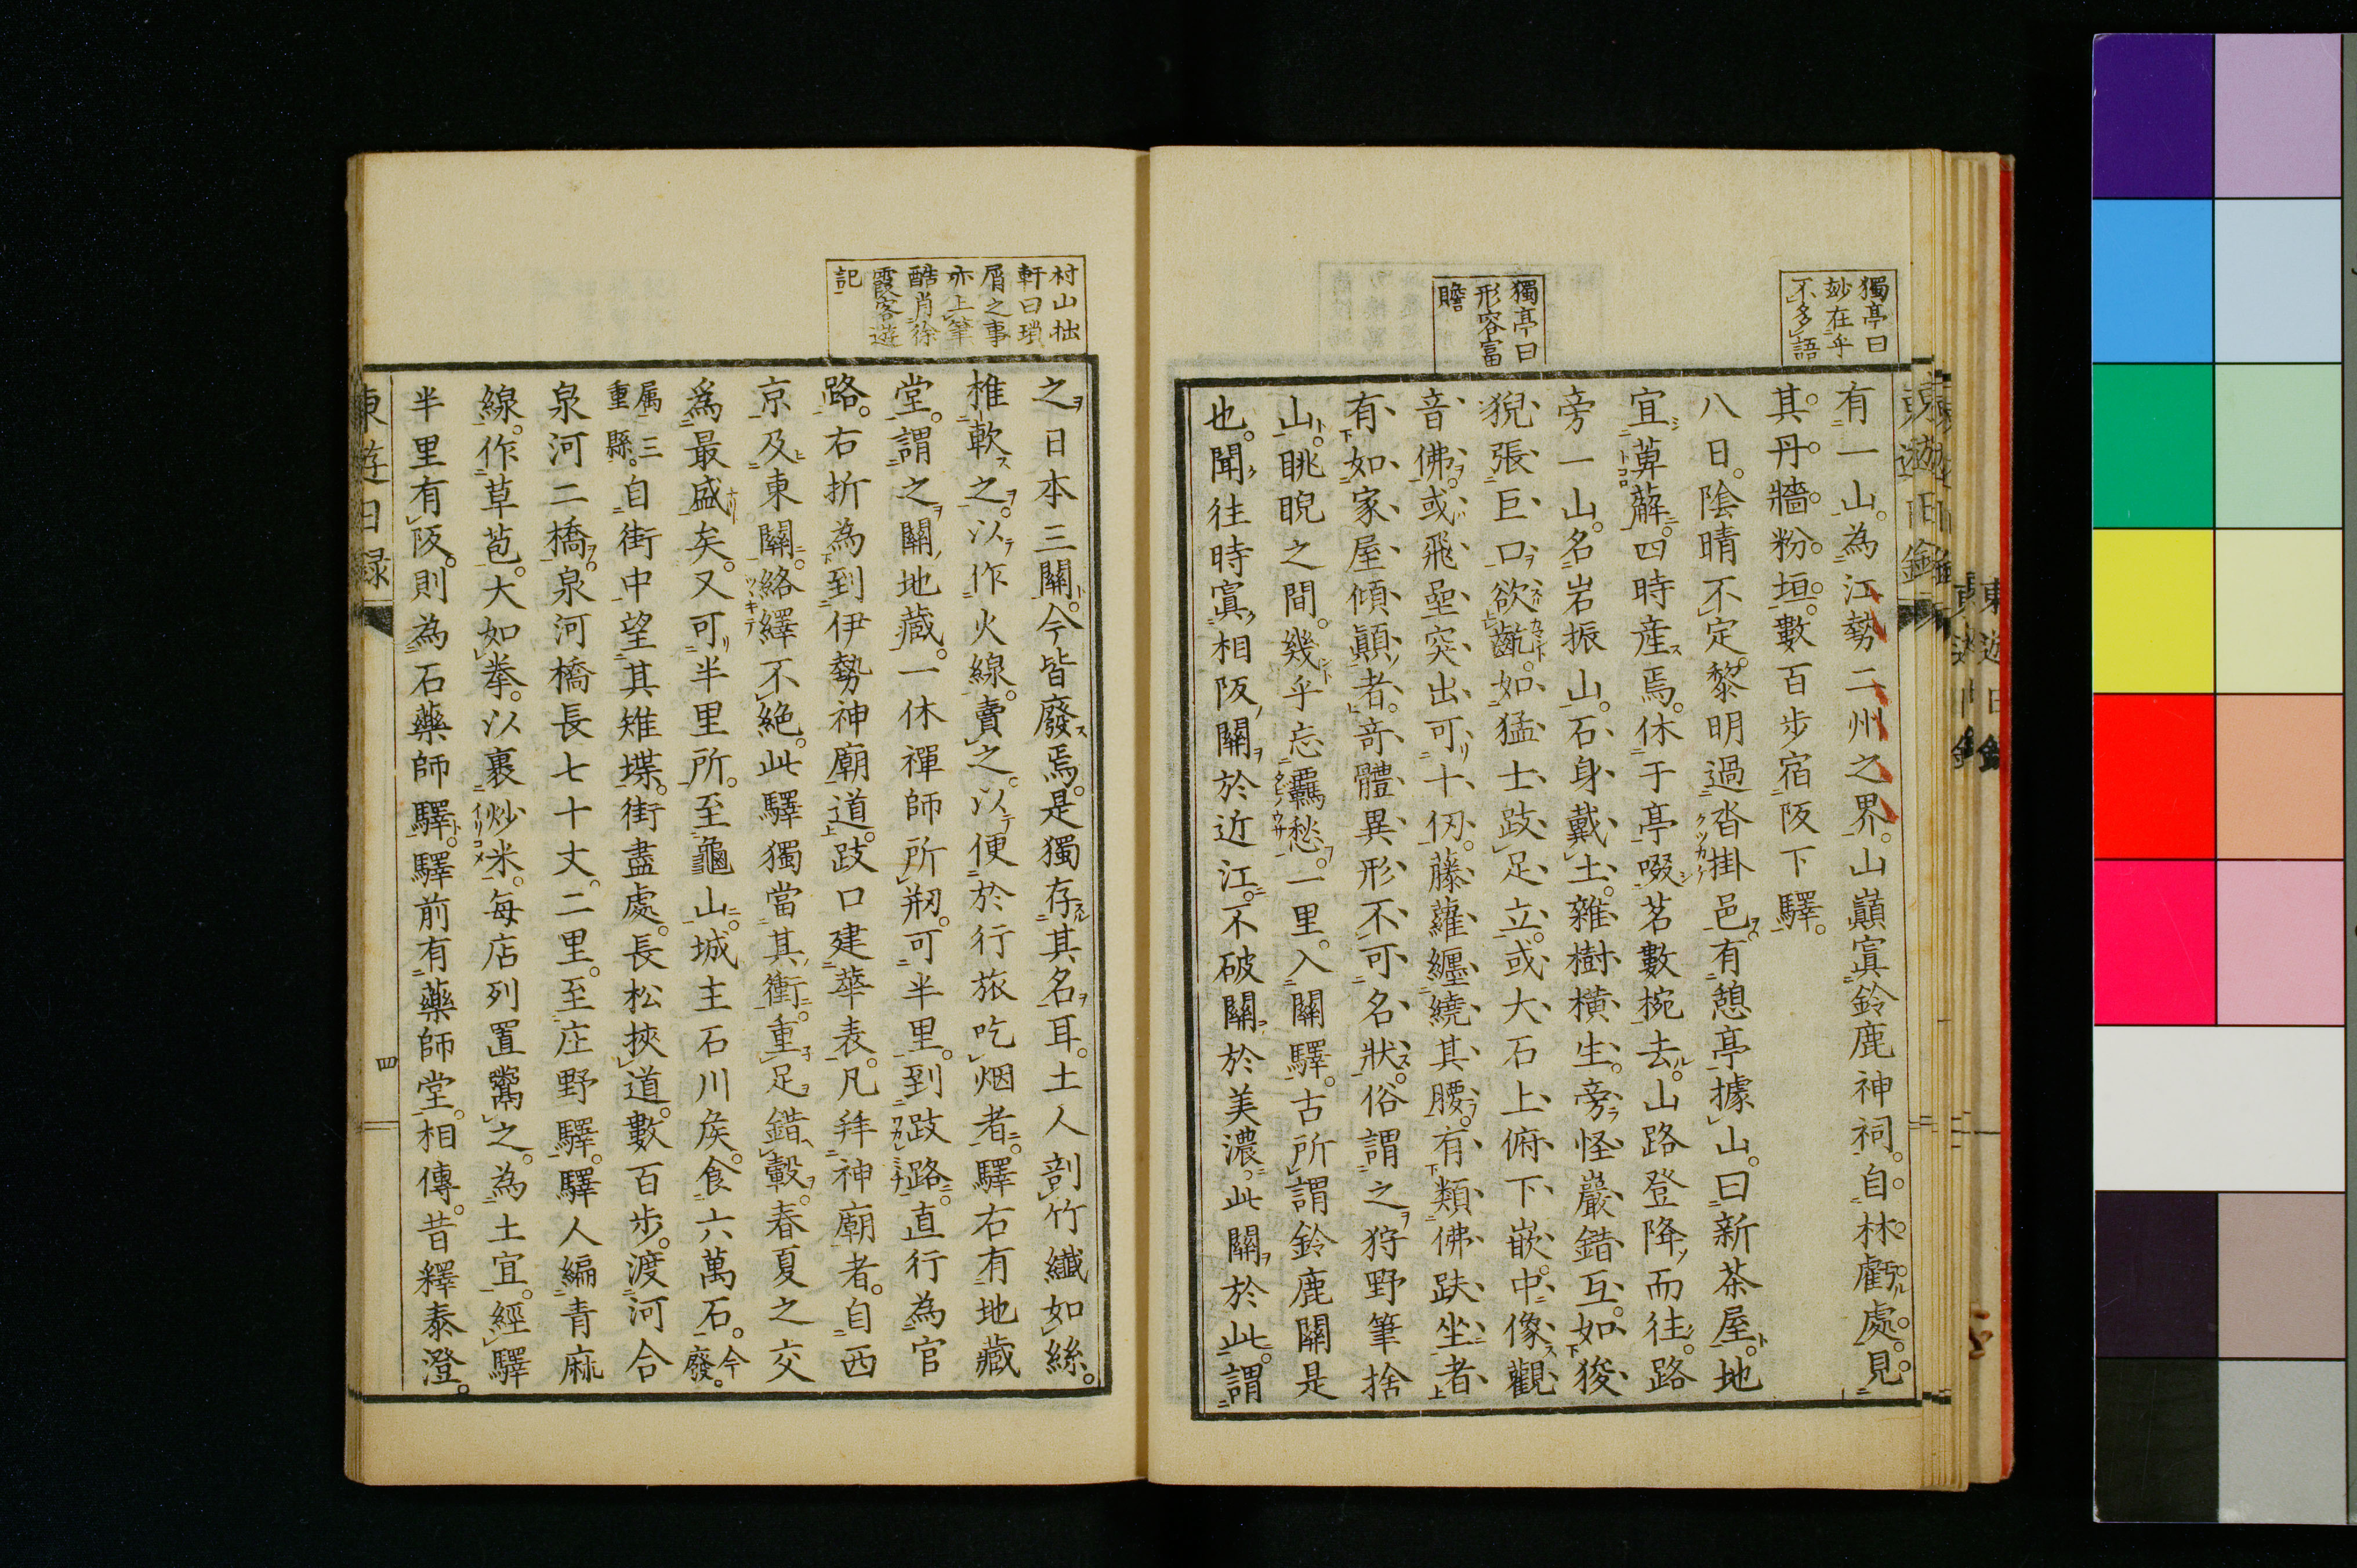 獨亭曰
妙在乎
不多語
獨亭曰
形容富
贍
有一山。為江勢二州之界。山巔寘鈴鹿神祠。自林虧處。見
其丹牆粉垣。數百步宿阪下驛。
八日。陰晴不定。黎明過沓掛邑。有憩亭據山。曰新茶屋。地
宜萆薢。四時産焉。休于亭啜茗數椀去。山路登降而往。路
旁一山。名岩振山。石身戴土。雜樹橫生。旁怪巖錯互。如狻
猊張巨口欲齕。如猛士跂足立。或大石上俯下嵌。中像觀
音佛。或飛壘突出可十仞。藤蘿纏繞其腰。有類佛趺坐者
有如家屋傾顚者。竒體異形不可名狀。俗謂之狩野筆捨
山。眺睨之間。幾乎忘羈愁。一里。入關驛。古所謂鈴鹿關是
也。聞往時寘相阪關於近江。不破關於美濃。此關於此。謂
村山拙
軒曰瑣
屑之事
亦上筆
酷肖徐
霞客遊
記
之日本三關。今皆廢焉。是獨存其名耳。土人剖竹纖如絲。
椎軟之。以作火線。賣之。以便於行旅吃烟者。驛右有地藏
堂。謂之關地藏。一休禪師所剏。可半里。到跂路。直行為官
路。右折為到伊勢神廟道。跂口建華表。凡拜神廟者。自西
京及東關。絡繹不絶。此驛獨當其衝。重足錯轂。春夏之交
爲最盛矣。又可半里所。至龜山。城主石川侯。食六萬石。今廢。
属三重縣。自街中望其雉堞。街盡處。長松挾道。數百步。渡河合
泉河二橋。泉河橋長七十丈。二里。至庄野驛。驛人編青麻
線。作草苞。大如拳。以裹炒米。每店列置鬻之。為土宜。經驛
半里有阪。則為石藥師驛。驛前有藥師堂。相傳。昔釋泰澄。
東遊日録
四